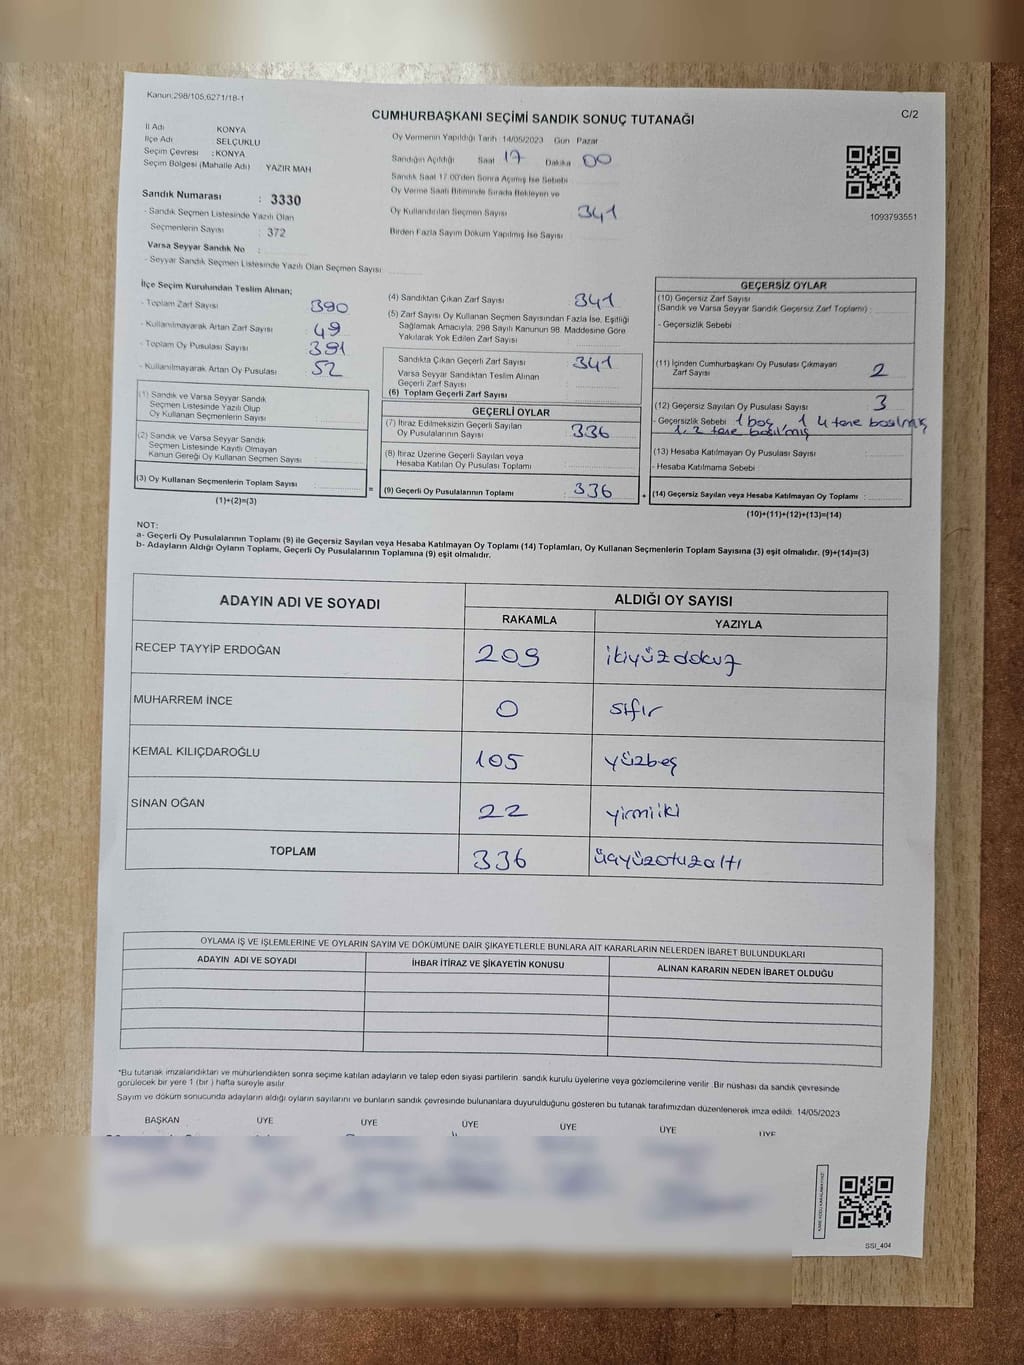 Kanun:298/105,6271/18-1
C/2
CUMHURBAŞKANI SEÇİMİ SANDIK SONUÇ TUTANAĞI
İl Adı KONYA
İlçe Adı SELÇUKLU
Seçim Çevresi : KONYA
Seçim Bölgesi (Mahalle Adı) YAZIR MAH
Sandık Numarası : 3330
- Sandık Seçmen Listesinde Yazılı Olan
Seçmenlerin Sayısı : 372
Varsa Seyyar Sandık No :
- Seyyar Sandık Seçmen Listesinde Yazılı Olan Seçmen Sayısı
Oy Vermenin Yapıldığı Tarih 14/05/2023 Gün Pazar
Sandığın Açıldığı Saat 17 Dakika 00
Sandık Saat 17:00'den Sonra Açılmış İse Sebebi
Oy Verme Saati Bitiminde Sırada Bekleyen ve
Oy Kullandırılan Seçmen Sayısı 341
Birden Fazla Sayım Döküm Yapılmış İse Sayısı
1093793551
İlçe Seçim Kurulundan Teslim Alınan;
- Toplam Zarf Sayısı 390
- Kullanılmayarak Artan Zarf Sayısı : 49
- Toplam Oy Pusulası Sayısı 391
- Kullanılmayarak Artan Oy Pusulası : 52
(1) Sandık ve Varsa Seyyar Sandık
Seçmen Listesinde Yazılı Olup
Oy Kullanan Seçmenlerin Sayısı :
(2) Sandık ve Varsa Seyyar Sandık
Seçmen Listesinde Kayıtlı Olmayan
Kanun Gereği Oy Kullanan Seçmen Sayısı :
(3) Oy Kullanan Seçmenlerin Toplam Sayısı :
(1)+(2)=(3)
=
(4) Sandıktan Çıkan Zarf Sayısı : 341
(5) Zarf Sayısı Oy Kullanan Seçmen Sayısından Fazla İse, Eşitliği
Sağlamak Amacıyla; 298 Sayılı Kanunun 98. Maddesine Göre
Yakılarak Yok Edilen Zarf Sayısı :
Sandıkta Çıkan Geçerli Zarf Sayısı : 341
Varsa Seyyar Sandıktan Teslim Alınan
Geçerli Zarf Sayısı :
(6) Toplam Geçerli Zarf Sayısı :
GEÇERLİ OYLAR
(7) İtiraz Edilmeksizin Geçerli Sayılan
Oy Pusulalarının Sayısı : 336
(8) İtiraz Üzerine Geçerli Sayılan veya
Hesaba Katılan Oy Pusulası Toplamı :
(9) Geçerli Oy Pusulalarının Toplamı : 336
+
GEÇERSİZ OYLAR
(10) Geçersiz Zarf Sayısı
(Sandık ve Varsa Seyyar Sandık Geçersiz Zarf Toplamı) :
- Geçersizlik Sebebi
(11) İçinden Cumhurbaşkanı Oy Pusulası Çıkmayan
Zarf Sayısı : 2
(12) Geçersiz Sayılan Oy Pusulası Sayısı : 3
- Geçersizlik Sebebi 1 boş 1 4 tane basılmış
1, 2 tane basılmış
(13) Hesaba Katılmayan Oy Pusulası Sayısı :
- Hesaba Katılmama Sebebi
(14) Geçersiz Sayılan veya Hesaba Katılmayan Oy Toplamı :
(10)+(11)+(12)+(13)=(14)
NOT:
a- Geçerli Oy Pusulalarının Toplamı (9) ile Geçersiz Sayılan veya Hesaba Katılmayan Oy Toplamı (14) Toplamları, Oy Kullanan Seçmenlerin Toplam Sayısına (3) eşit olmalıdır. (9)+(14)=(3)
b- Adayların Aldığı Oyların Toplamı, Geçerli Oy Pusulalarının Toplamına (9) eşit olmalıdır.
ADAYIN ADI VE SOYADI
ALDIĞI OY SAYISI
RAKAMLA YAZIYLA
RECEP TAYYİP ERDOĞAN 209 ikiyüzdokuz
MUHARREM İNCE 0 sıfır
KEMAL KILIÇDAROĞLU 105 yüzbeş
SİNAN OĞAN 22 yirmiiki
TOPLAM 336 üçyüzotuzaltı
OYLAMA İŞ VE İŞLEMLERİNE VE OYLARIN SAYIM VE DÖKÜMÜNE DAİR ŞİKAYETLERLE BUNLARA AİT KARARLARIN NELERDEN İBARET BULUNDUKLARI
ADAYIN ADI VE SOYADI İHBAR İTİRAZ VE ŞİKAYETİN KONUSU ALINAN KARARIN NEDEN İBARET OLDUĞU
*Bu tutanak imzalandıktan ve mühürlendikten sonra seçime katılan adayların ve talep eden siyasi partilerin sandık kurulu üyelerine veya gözlemcilerine verilir. Bir nüshası da sandık çevresinde
görülecek bir yere 1 (bir) hafta süreyle asılır.
Sayım ve döküm sonucunda adayların aldığı oyların sayılarını ve bunların sandık çevresinde bulunanlara duyurulduğunu gösteren bu tutanak tarafımızdan düzenlenerek imza edildi. 14/05/2023
BAŞKAN ÜYE ÜYE ÜYE ÜYE ÜYE ÜYE
SSI_404